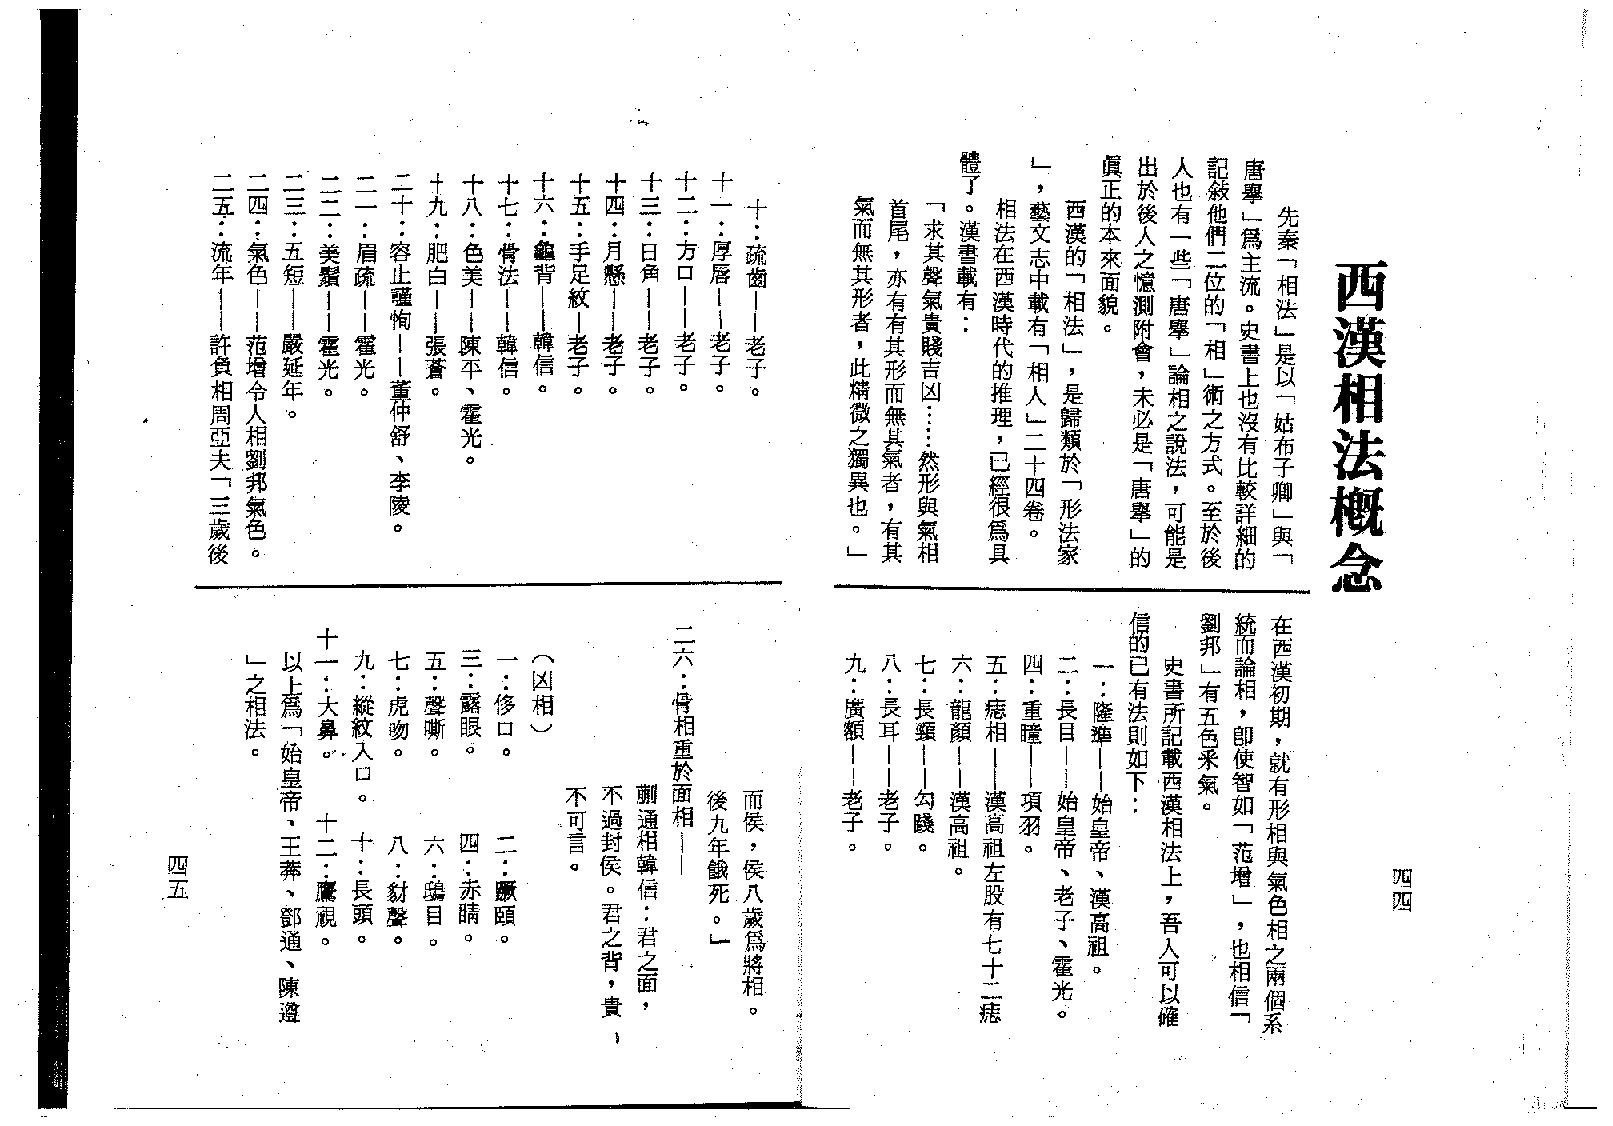 西漢相法概念
先秦「相法」是以「姑布子卿」與「
唐舉」爲主流。史書上也沒有比較詳細的
記敍他們二位的「相」術之方式。至於後
人也有一些「唐舉」論相之說法，可能是
出於後人之憶測附會，未必是「唐舉」的
眞正的本來面貌。
西漢的「相法」，是歸類於「形法家
」，藝文志中載有「相人」二十四卷。
相法在西漢時代的推理，已經很爲具
體了。漢書載有：
「求其聲氣貴賤吉凶……然形與氣相
首尾，亦有有其形而無其氣者，有其
氣而無其形者，此精微之獨異也。」
在西漢初期，就有形相與氣色相之兩個系
統而論相，卽使智如「范增」，也相信「
劉邦」有五色釆氣。
史書所記載西漢相法上，吾人可以確
信的已有法則如下：
一：隆準——始皇帝、漢高祖。
二：長目——始皇帝、老子、霍光。
四：重瞳——項羽。
五：痣相——漢高祖左股有七十二痣
六：龍顏——漢高祖。
七：長頸——勾踐。
八：長耳——老子。
九：廣額——老子。
四四
十：疏齒——老子。
十一：厚唇——老子。
十二：方口——老子。
十三：日角——老子。
十四：月懸——老子。
十五：手足紋—老子。
十六：龜背——韓信。
十七：骨法——韓信。
十八：色美——陳平、霍光。
十九：肥白——張蒼。
二十：容止謹恂——董仲舒、李陵。
二一：眉疏——霍光。
二二：美鬚——霍光。
二三：五短——嚴延年。
二四：氣色——范增令人相劉邦氣色。
二五：流年——許負相周亞夫「三歲後
而侯，侯八歲爲將相。
後九年餓死。」
二六：骨相重於面相——
蒯通相韓信：君之面，
不過封侯。君之背，貴，
不可言。
（凶相）
一：侈口。　二：蹶頤。
三：露眼。　四：赤睛。
五：聲嘶。　六：鴟目。
七：虎吻。　八：豺聲。
九：縱紋入口。　十：長頸。
十一：大鼻。　十二：鷹視。
以上爲「始皇帝、王莽、鄧通、陳遵
」之相法。
四五